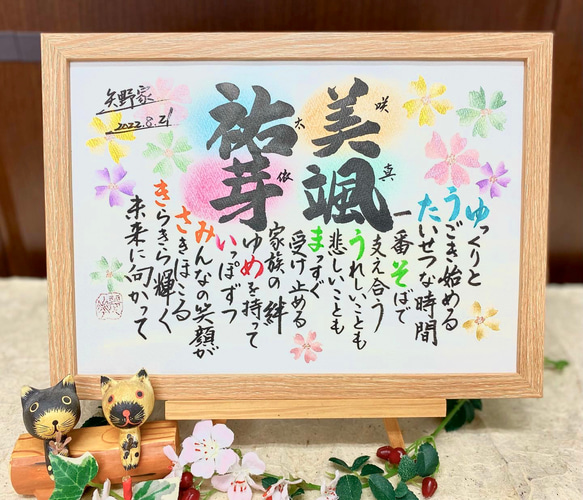 矢野家
2022.8.21
美咲
颯真
祐太
芽依
ゆっくりと
うごき始める
たいせつな時間
一番そばで
支え合う
うれしいことも
悲しいことも
まっすぐ
受け止める
家族の絆
ゆめを持って
いっぽずつ
みんなの笑顔が
さきほこる
きらきら輝く
未来に向かって